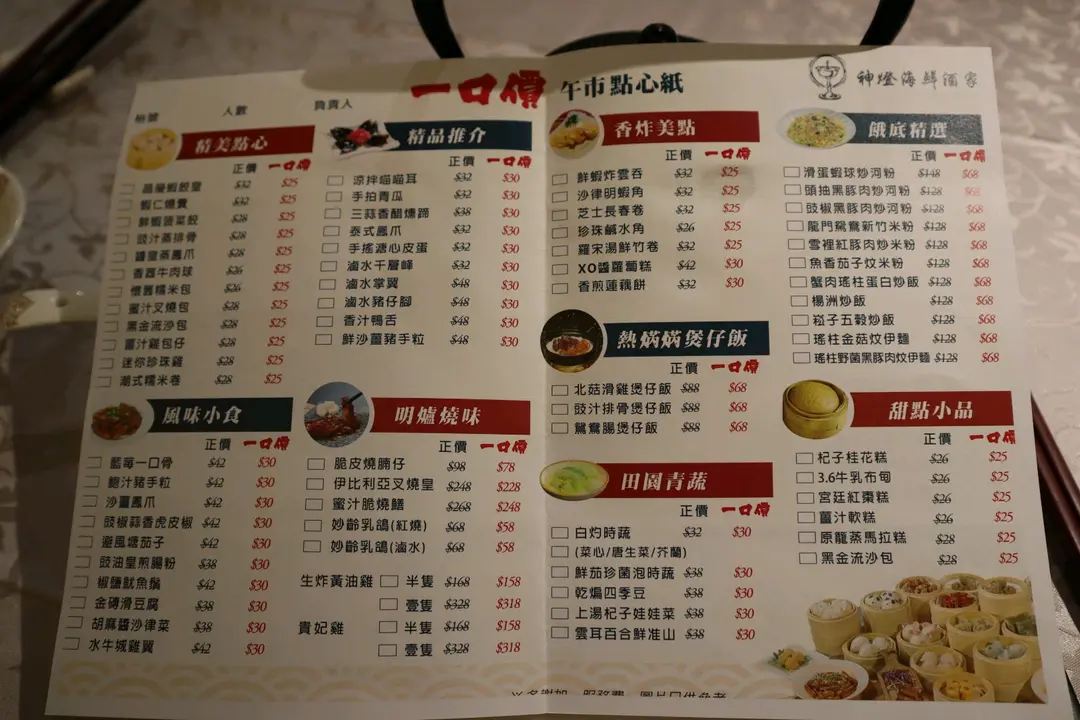 一口價 午市點心紙
神燈海鮮酒家
枱號 人數 負責人
精美點心
正價 一口價
晶瑩蝦餃皇 $32 $25
蝦仁燒賣 $32 $25
鮮蝦菠菜餃 $28 $25
豉汁蒸排骨 $28 $25
醬皇蒸鳳爪 $28 $25
香茜牛肉球 $26 $25
懷舊糯米包 $26 $25
蜜汁叉燒包 $28 $25
黑金流沙包 $28 $25
薑汁雞包仔 $28 $25
迷你珍珠雞 $28 $25
潮式糯米卷 $28 $25
風味小食
正價 一口價
藍莓一口骨 $42 $30
鮑汁豬手粒 $42 $30
沙薑鳳爪 $42 $30
豉椒蒜香虎皮椒 $42 $30
避風塘茄子 $42 $30
豉油皇煎腸粉 $38 $30
椒鹽魷魚鬚 $42 $30
金磚滑豆腐 $38 $30
胡麻醬沙律菜 $38 $30
水牛城雞翼 $42 $30
精品推介
正價 一口價
涼拌喵喵耳 $32 $30
手拍青瓜 $32 $30
三蒜香醋燻蹄 $38 $30
泰式鳳爪 $32 $30
手搖溏心皮蛋 $32 $30
滷水千層峰 $32 $30
滷水掌翼 $48 $30
滷水豬仔腳 $48 $30
香汁鴨舌 $48 $30
鮮沙薑豬手粒 $48 $30
明爐燒味
正價 一口價
脆皮燒腩仔 $98 $78
伊比利亞叉燒皇 $248 $228
蜜汁脆燒鱔 $268 $248
妙齡乳鴿(紅燒) $68 $58
妙齡乳鴿(滷水) $68 $58
生炸黃油雞 半隻 $168 $158
壹隻 $328 $318
貴妃雞 半隻 $168 $158
壹隻 $328 $318
香炸美點
正價 一口價
鮮蝦炸雲吞 $32 $25
沙律明蝦角 $32 $25
芝士長春卷 $32 $25
珍珠鹹水角 $26 $25
羅宋湯鮮竹卷 $32 $25
XO醬蘿蔔糕 $42 $30
香煎蓮藕餅 $32 $30
熱焫焫煲仔飯
正價 一口價
北菇滑雞煲仔飯 $88 $68
豉汁排骨煲仔飯 $88 $68
鴛鴦腸煲仔飯 $88 $68
田園青蔬
正價 一口價
白灼時蔬 $32 $30
(菜心/唐生菜/芥蘭)
鮮茄珍菌泡時蔬 $38 $30
乾煸四季豆 $38 $30
上湯杞子娃娃菜 $38 $30
雲耳百合鮮准山 $38 $30
餓底精選
正價 一口價
滑蛋蝦球炒河粉 $148 $68
頭抽黑豚肉炒河粉 $128 $68
豉椒黑豚肉炒河粉 $128 $68
龍門鴛鴦新竹米粉 $128 $68
雪裡紅豚肉炒米粉 $128 $68
魚香茄子炆米粉 $128 $68
蟹肉瑤柱蛋白炒飯 $128 $68
楊洲炒飯 $128 $68
崧子五穀炒飯 $128 $68
瑤柱金菇炆伊麵 $128 $68
瑤柱野菌黑豚肉炆伊麵 $128 $68
甜點小品
正價 一口價
杞子桂花糕 $26 $25
3.6牛乳布甸 $26 $25
宮廷紅棗糕 $26 $25
薑汁軟糕 $26 $25
原龍蒸馬拉糕 $28 $25
黑金流沙包 $28 $25